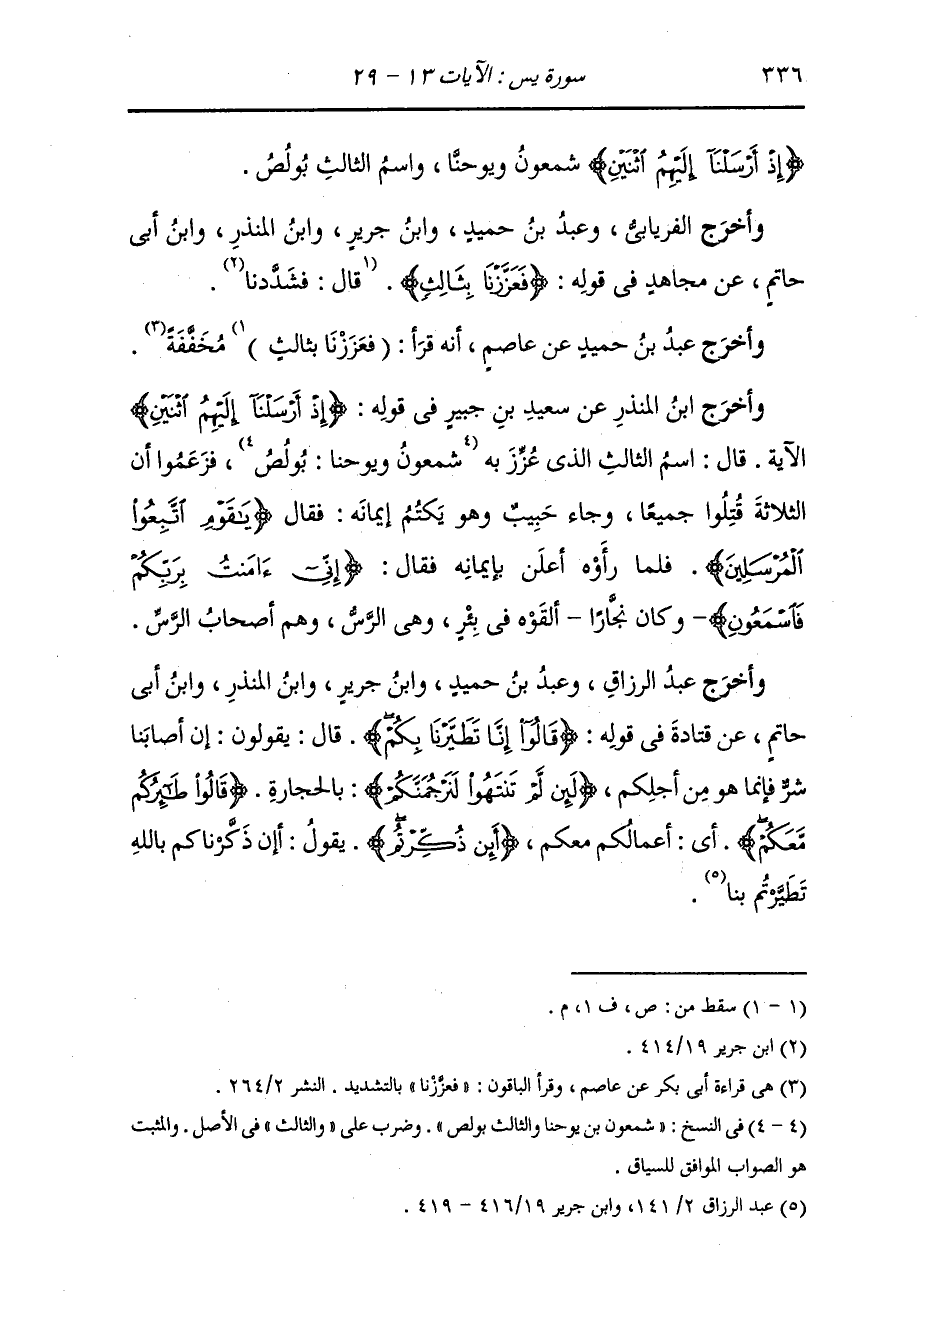 ٣٣٦ سورة يس : الآيات ١٣ - ٢٩
﴿إِذْ أَرْسَلْنَآ إِلَيْهِمُ ٱثْنَيْنِ﴾ شمعونُ ويوحنَّا ، واسمُ الثالثِ بُولُصُ .
وأخرَج الفريابىُّ ، وعبدُ بنُ حميدٍ ، وابنُ جريرٍ ، وابنُ المنذرِ ، وابنُ أبى
حاتمٍ ، عن مجاهدٍ فى قولِه : ﴿فَعَزَّزْنَا بِثَالِثٍ﴾ . (١قال : فشَدَّدنا(٢) .
وأخرَج عبدُ بنُ حميدٍ عن عاصمٍ ، أنه قرَأ : ( فعَزَزْنَا بثالثٍ )١) مُخَفَّفَةً(٣) .
وأخرَج ابنُ المنذرِ عن سعيدِ بنِ جبيرٍ فى قولِه : ﴿إِذْ أَرْسَلْنَآ إِلَيْهِمُ ٱثْنَيْنِ﴾
الآية . قال : اسمُ الثالثِ الذى عُزِّزَ به (٤شمعونُ ويوحنا : بُولُصُ٤) ، فزَعَمُوا أن
الثلاثةَ قُتِلُوا جميعًا ، وجاء حَبِيبٌ وهو يَكتُمُ إيمانَه : فقال ﴿يَٰقَوْمِ ٱتَّبِعُوا۟
ٱلْمُرْسَلِينَ﴾ . فلما رأَوْه أعلَن بإيمانِه فقال : ﴿إِنِّىٓ ءَامَنتُ بِرَبِّكُمْ
فَٱسْمَعُونِ﴾ - وكان نجَّارًا - ألقَوْه فى بِئْرٍ ، وهى الرَّسُّ ، وهم أصحابُ الرَّسِّ .
وأخرَج عبدُ الرزاقِ ، وعبدُ بنُ حميدٍ ، وابنُ جريرٍ ، وابنُ المنذرِ ، وابنُ أبى
حاتمٍ ، عن قتادةَ فى قولِه : ﴿قَالُوٓا۟ إِنَّا تَطَيَّرْنَا بِكُمْ﴾ . قال : يقولون : إن أصابَنا
شرٌّ فإنما هو مِن أجلِكم ، ﴿لَئِن لَّمْ تَنتَهُوا۟ لَنَرْجُمَنَّكُمْ﴾ : بالحجارةِ . ﴿قَالُوا۟ طَٰٓئِرُكُم
مَّعَكُمْ﴾ . أى : أعمالُكم معكم ، ﴿أَئِن ذُكِّرْتُم﴾ . يقولُ : أإن ذَكَّرْناكم باللهِ
تَطَيَّرْتُم بنا(٥) .
(١ - ١) سقط من : ص ، ف ١، م .
(٢) ابن جرير ٤١٤/١٩ .
(٣) هى قراءة أبى بكر عن عاصم ، وقرأ الباقون : « فعزَّزْنا » بالتشديد . النشر ٢٦٤/٢ .
(٤ - ٤) فى النسخ : « شمعون بن يوحنا والثالث بولص » . وضرب على « والثالث » فى الأصل . والمثبت
هو الصواب الموافق للسياق .
(٥) عبد الرزاق ٢/ ١٤١، وابن جرير ٤١٦/١٩ - ٤١٩ .